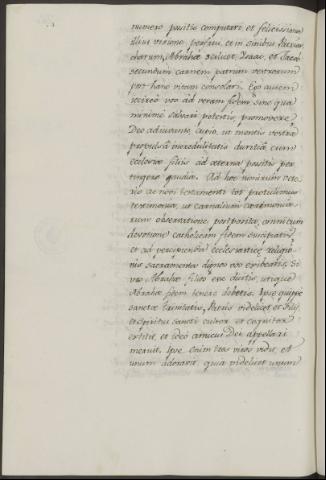 numero possitis computari, et felicissima
illius visione perfrui, et in sinibus Patriar-
charum, Abrahæ scilicet, Isaac, et Jacob
secundum carnem patrum vestrorum
post hanc vitam consolari. Ego autem
scirem vos ad veram fidem sine qua
minime salvari potestis, promovere
Deo adiuvante, cupio, ut mentis vestræ
propulsa incredulitatis duritia cum
ecclesiæ filiis ad æterna possitis per-
tingere gaudia. Ad hoc nimirum vete-
ris ac novi testamenti tot protulimus
testimonia, ut carnalium cæremonia-
rum observatione postposita, omni cum
devotione catholicam fidem suscipiatis
et ad percipienda ecclesiasticæ religio-
nis sacramenta dignos vos exibeatis. Si
vos Abrahæ filios esse dicitis, utique
Abrahæ fidem tenere debetis. Ipse quippe
sanctæ trinitatis, Patris videlicet et Filii,
et Spiritus sancti cultor et cognitor
extitit, et ideo amicus Dei appellari
meruit. Ipse enim tres viros vidit, et
unum adoravit, quia videlicet unum